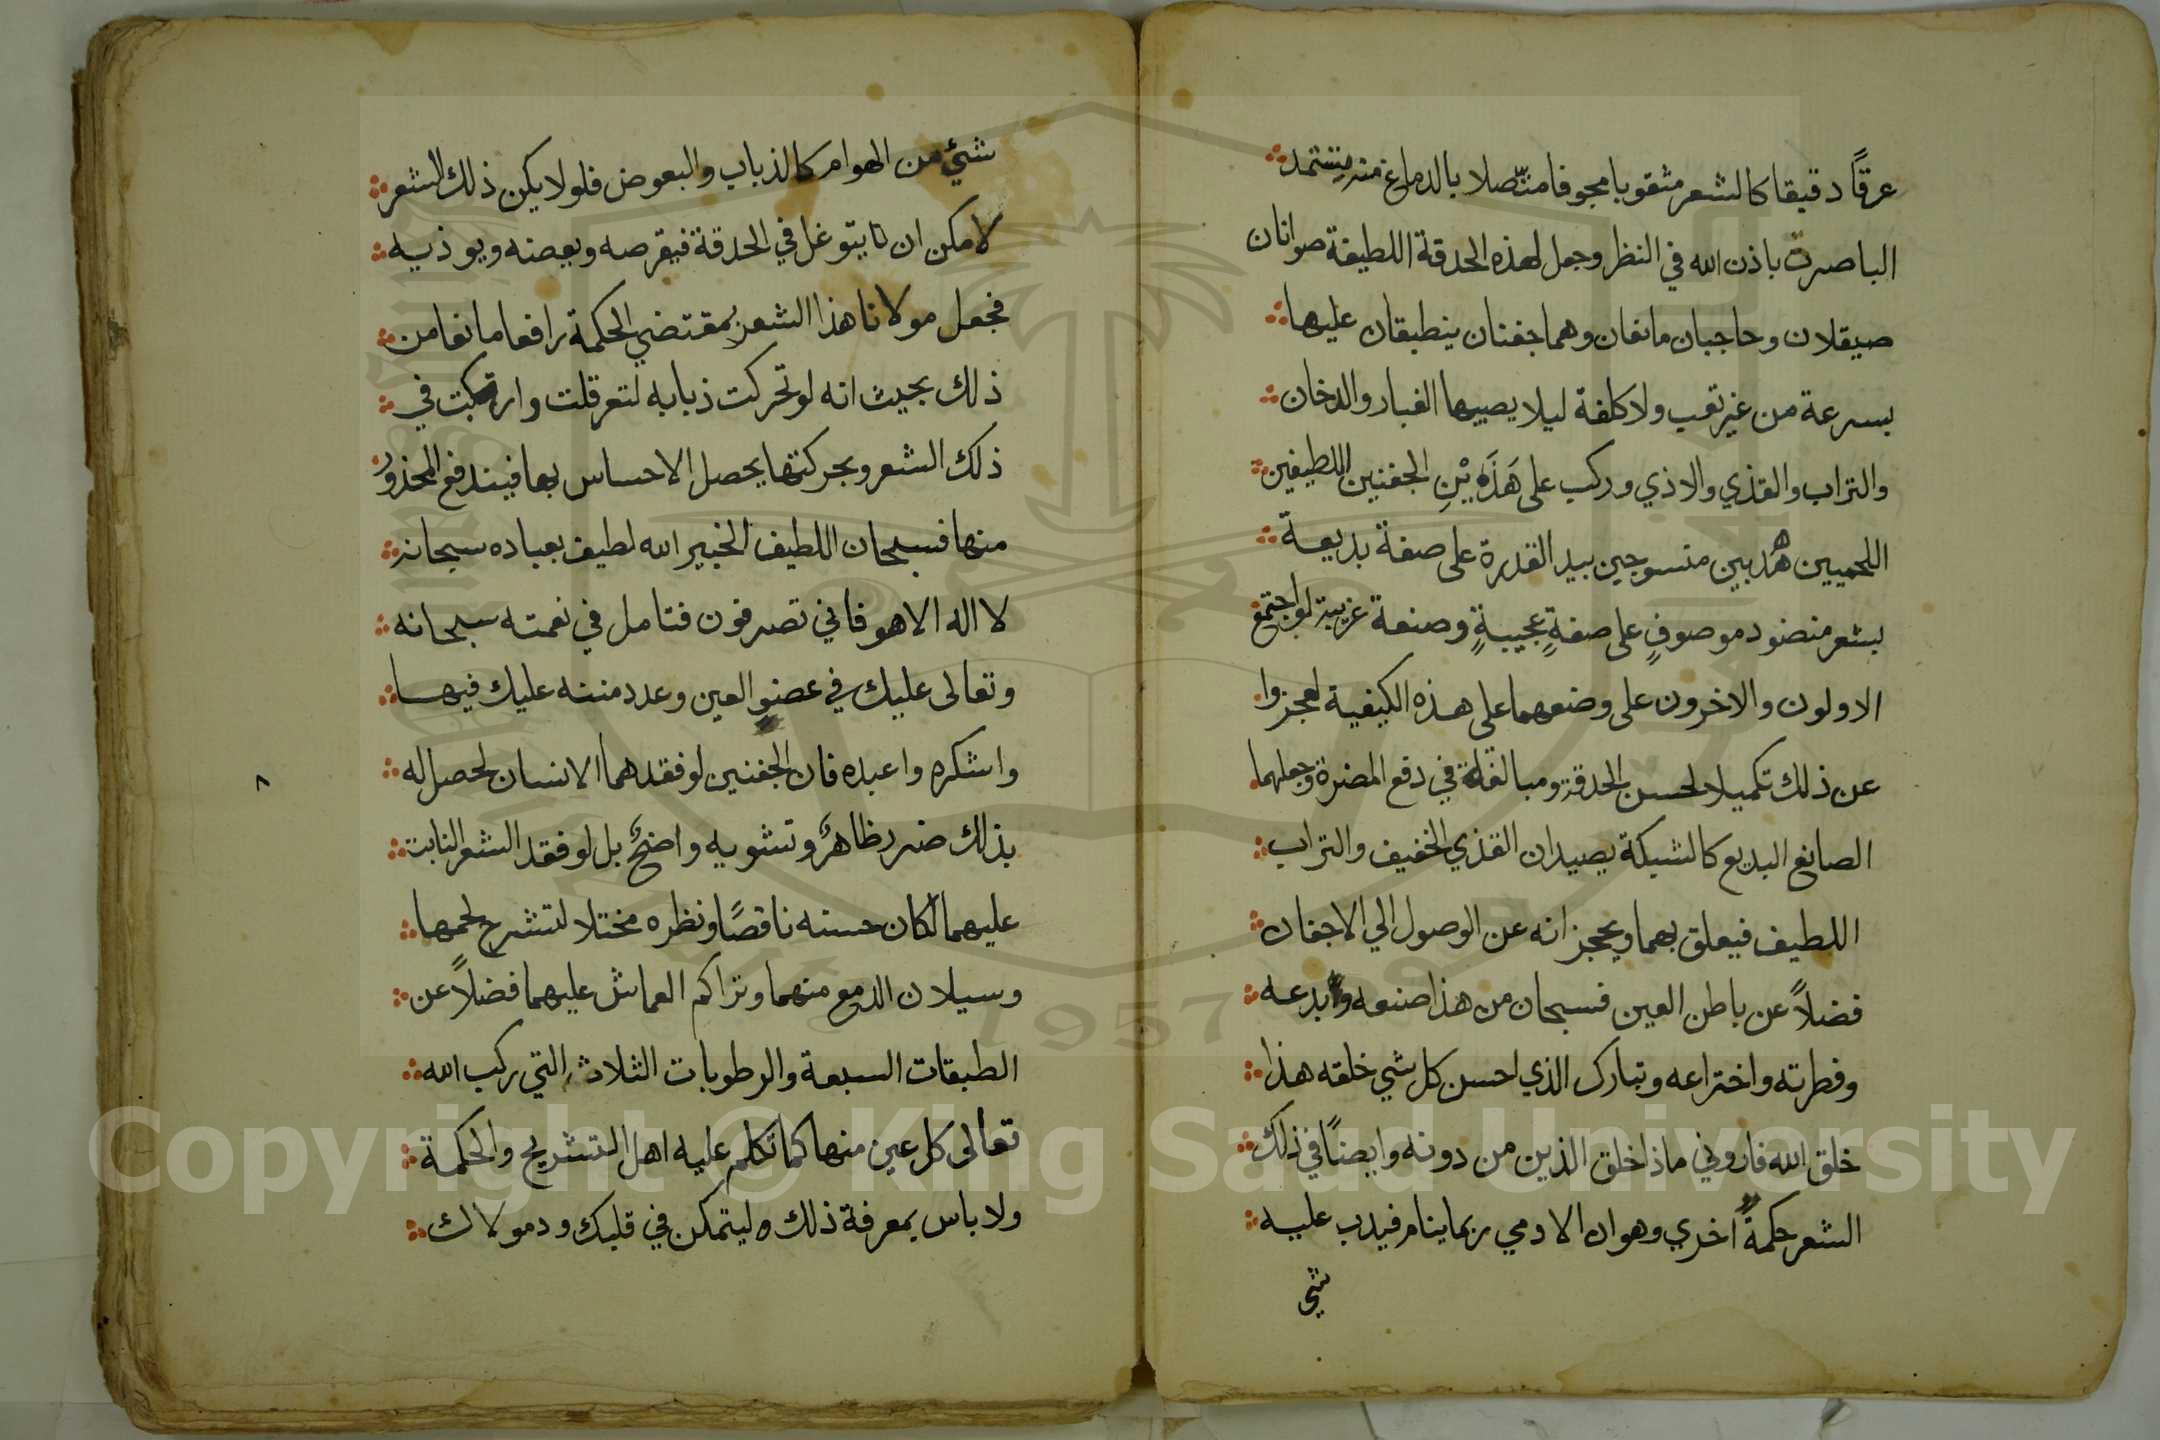 عرقاً دقيقا كالشعر مثقوبا مجوفا متّصلا بالدماغ منه تستمد
الباصرت باذن الله في النظر وجعل لهذه الحدقة اللطيفة صوانان
صيقلان وحاجبان مانعان وهما جفنان ينطبقان عليها
بسرعة من غير تعب ولا كلفة ليلا يصيبها الغبار والدخان
والتراب والقذي والاذي وركب على هَذَيْنِ الجفنين اللطيفين
اللحميين هُدبين منسوجين بيد القدرة على صفة بديعة
بشعر منضود موصوفٍ على صفةٍ عجيبةٍ وصنعة غريبة لو اجتمع
الاولون والاخرون على وضعهما على هذه الكيفية لعجزوا
عن ذلك تكميلا لحسن الحدقة ومبالغة في دفع المضرة وجعلهما
الصانع البديع كالشبكة يصيدان القذي الخفيف والتراب
اللطيف فيعلق بهما ويحجزانه عن الوصول الي الاجفان
فضلاً عن باطن العين فسبحان من هذا صنعه وابدعه
وفطرته واختراعه وتبارك الذي احسن كل شي خلقه هذا
خلق الله فاروني ماذا خلق الذين من دونه وايضاً في ذلك
الشعر حكمةً اخري وهو ان الادمي ربما ينام فيدب عليه
شي
شئ من الهوام كالذباب والبعوض فلولا يكن ذلك الشعر
لامكن ان يتوغل في الحدقة فيقرصه ويعضه ويوذيه
فجعل مولانا هذا الشعر بمقتضي الحكمة رافعا مانعا من
ذلك بحيث انه لو تحركت ذبابه لتعرقلت وارتكبت في
ذلك الشعر وبحركتها يحصل الاحساس بها فيندفع المحذور
منها فسبحان اللطيف الخبير الله لطيف بعباده سبحانه
لا اله الا هو فاني تصرفون فتامل في نعمته سبحانه
وتعالى عليك في عضو العين وعدد مننه عليك فيها
واشكره واعبده فان الجفنين لو فقدهما الانسان لحصل له
بذلك ضرر ظاهرٌ وتشويه واضحٌ بل لو فقد الشعر النابت
عليهما لكان حسنه ناقصًا ونظره مختلا لتشرح لحمها
وسيلان الدمع منهما وتراكم العماش عليهما فضلاً عن
الطبقات السبعة والرطوبات الثلاث التي ركب الله
تعالى كل عين منها كما تكلم عليه اهل التشريح والحكمة
ولا باس بمعرفة ذلك ليتمكن في قلبك ود مولاك
٨
Copyright © King Saud University
1957